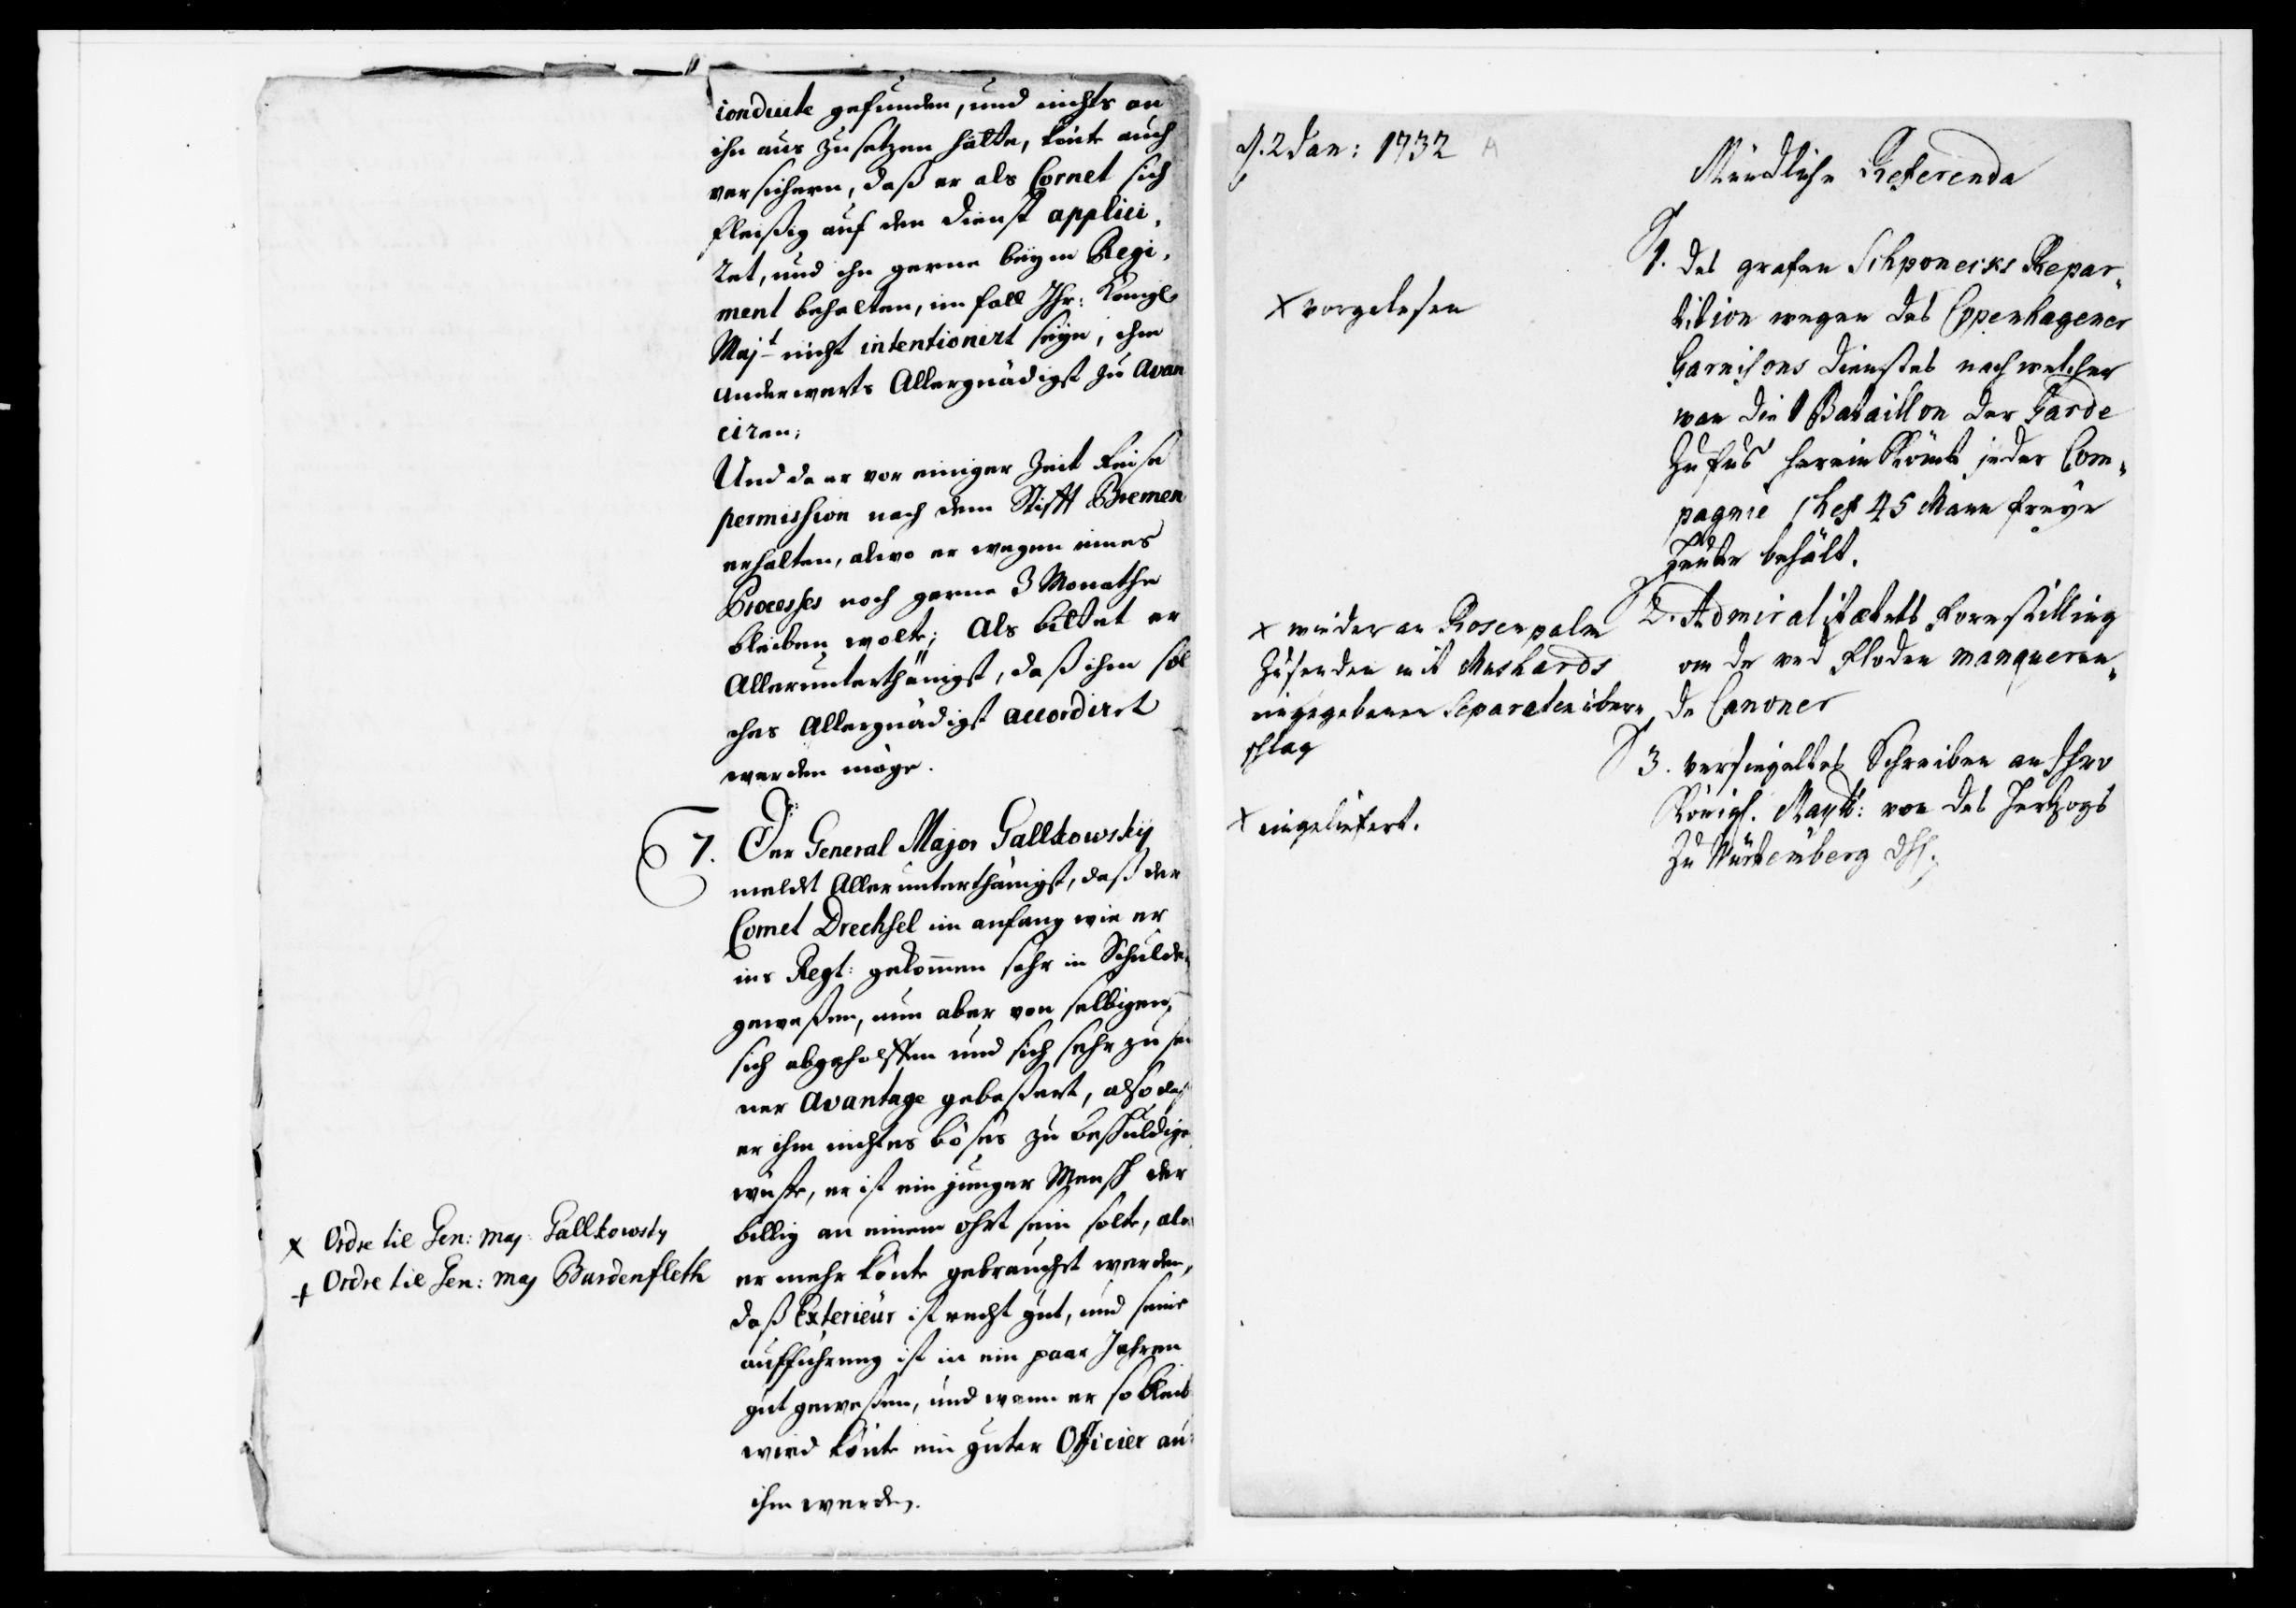 conduite gefunden, und nichts an
ihn aus zu setzen hätte, könte auch
versichern, daß er als Cornet sich
fleißig auf den Dienst applici,
ret, und ihn gerne beym Regi,
ment behalten, im fall Ihr: Königl
Majt nicht intentionirt seyn, ihm
anderwerts Allergnädigst zu Avan
ciren;
Und da er vor einiger Zeit Reise
permission nach dem Stifft Bremen
erhalten, alwo er wegen eines
Processes noch gerne 3 Monathe
bleiben wolte; Als bittet er
Allerunterthänigst, daß ihm sol
ches Allergnädigst accordirt
werden möge.
7. Der General Major Gallkowsky
meldet Allerunterthänigst, daß der
Cornet Drechsel im anfang wie er
ins Regt: gekommen sehr in Schulden
geweßen, nun aber von selbigen,
sich abgeholffen und sich sehr zu sei
ner Avantage gebeßert, also daß
er ihm nichtes böses zu beschuldigen
wüste, er ist ein junger Mensch der
billig an einem ohrt sein solte, alwo
er mehr könte gebraucht werden,
daß Exterieur ist recht gut, und seine
aufführung ist in ein paar Jahren
gut geweßen, und wann er so bleib
wird könte ein guter Officier aus
ihm werden.
x Ordre til Gen: Maj: Gallkowsky
+ Ordre til Gen: Maj Bardenfleth
d. 2 Jan: 1732 A
Mündliche Referenda
1. des grafen Schponecks Repar,
tition wegen des Coppenhagener
Garnisons Dienstes nach welcher
wan die 1 Bataillon der Garde
zu fus herein kömt jeder Com,
pagnie Chef 45 Mann freye
Leute behält.
x vorgelesen
2. Admiralitætets Forestilling
om de ved Floden manqueren,
de Canoner
x wieder an Rosenpalm
zu senden mit Meshards
eingegebenen Separaten über,
schlag
3. versiegeltes Schreiben an Ihro
Königl. Maytt: von des Hertzogs
zu Würtemberg Dhl.
x eingeliefert.